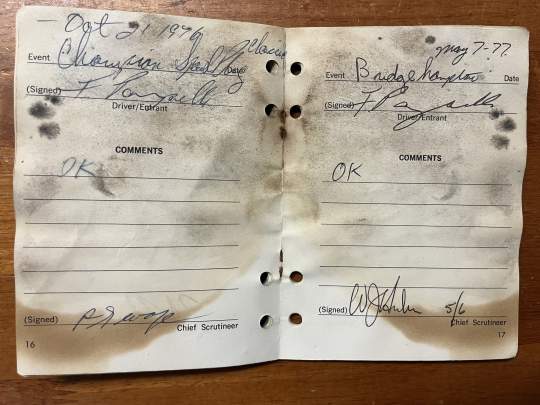 Oct 21 1976
Event Champion Spark Plug Classic
(Signed)
Driver/Entrant
COMMENTS
OK
(Signed)
Chief Scrutineer
16
May 7-77.
Event Bridgehampton Date
(Signed)
Driver/Entrant
COMMENTS
OK
(Signed) 5/6
Chief Scrutineer
17